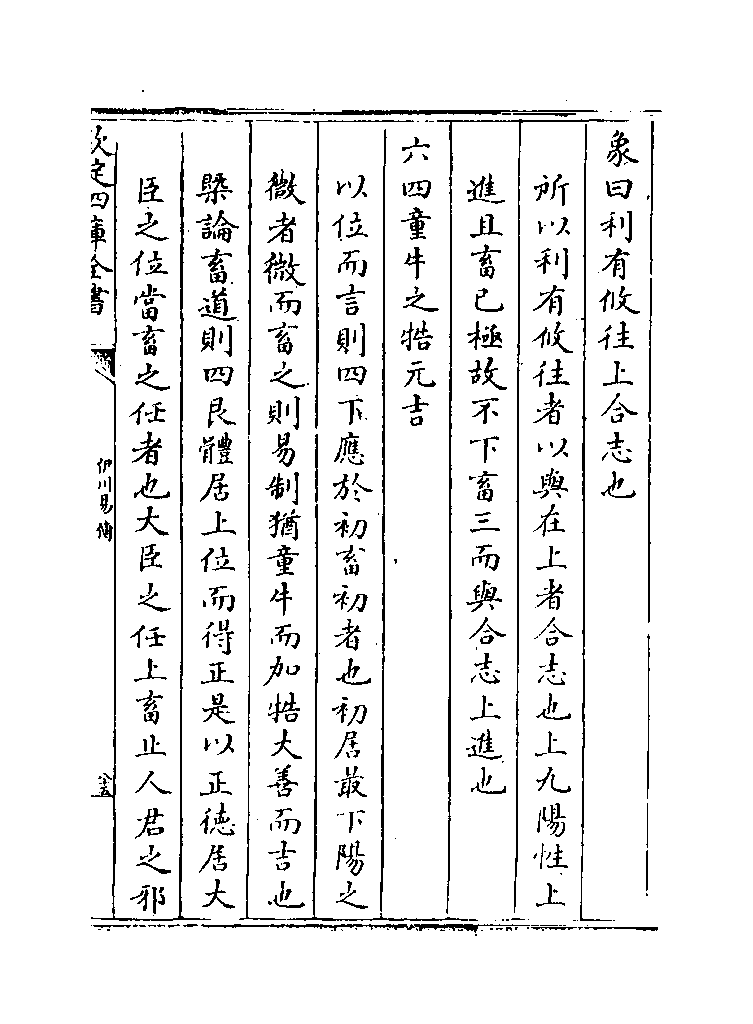 象曰利有攸往上合志也
所以利有攸往者以與在上者合志也上九陽性上
進且畜已極故不下畜三而與合志上進也
六四童牛之牿元吉
以位而言則四下應於初畜初者也初居最下陽之
微者微而畜之則易制猶童牛而加牿大善而吉也
槩論畜道則四艮體居上位而得正是以正德居大
臣之位當畜之任者也大臣之任上畜止人君之邪
欽定四庫全書
伊川易傳